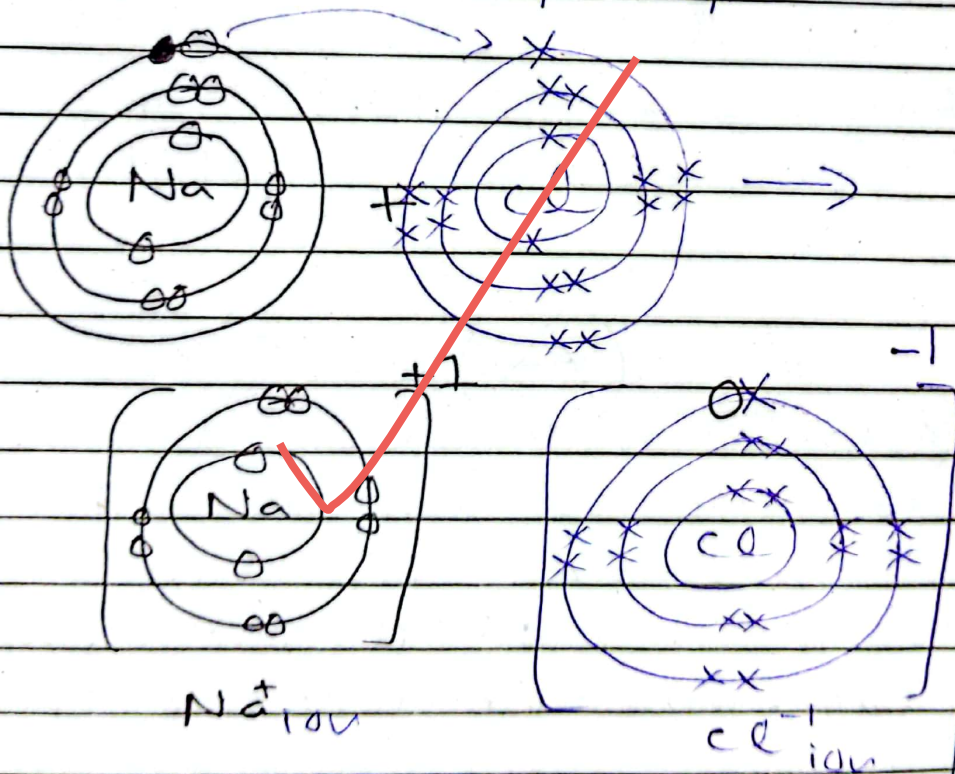 Na + Cl →
+1 -1
Na Cl
Na⁺ ion Cl⁻¹ ion